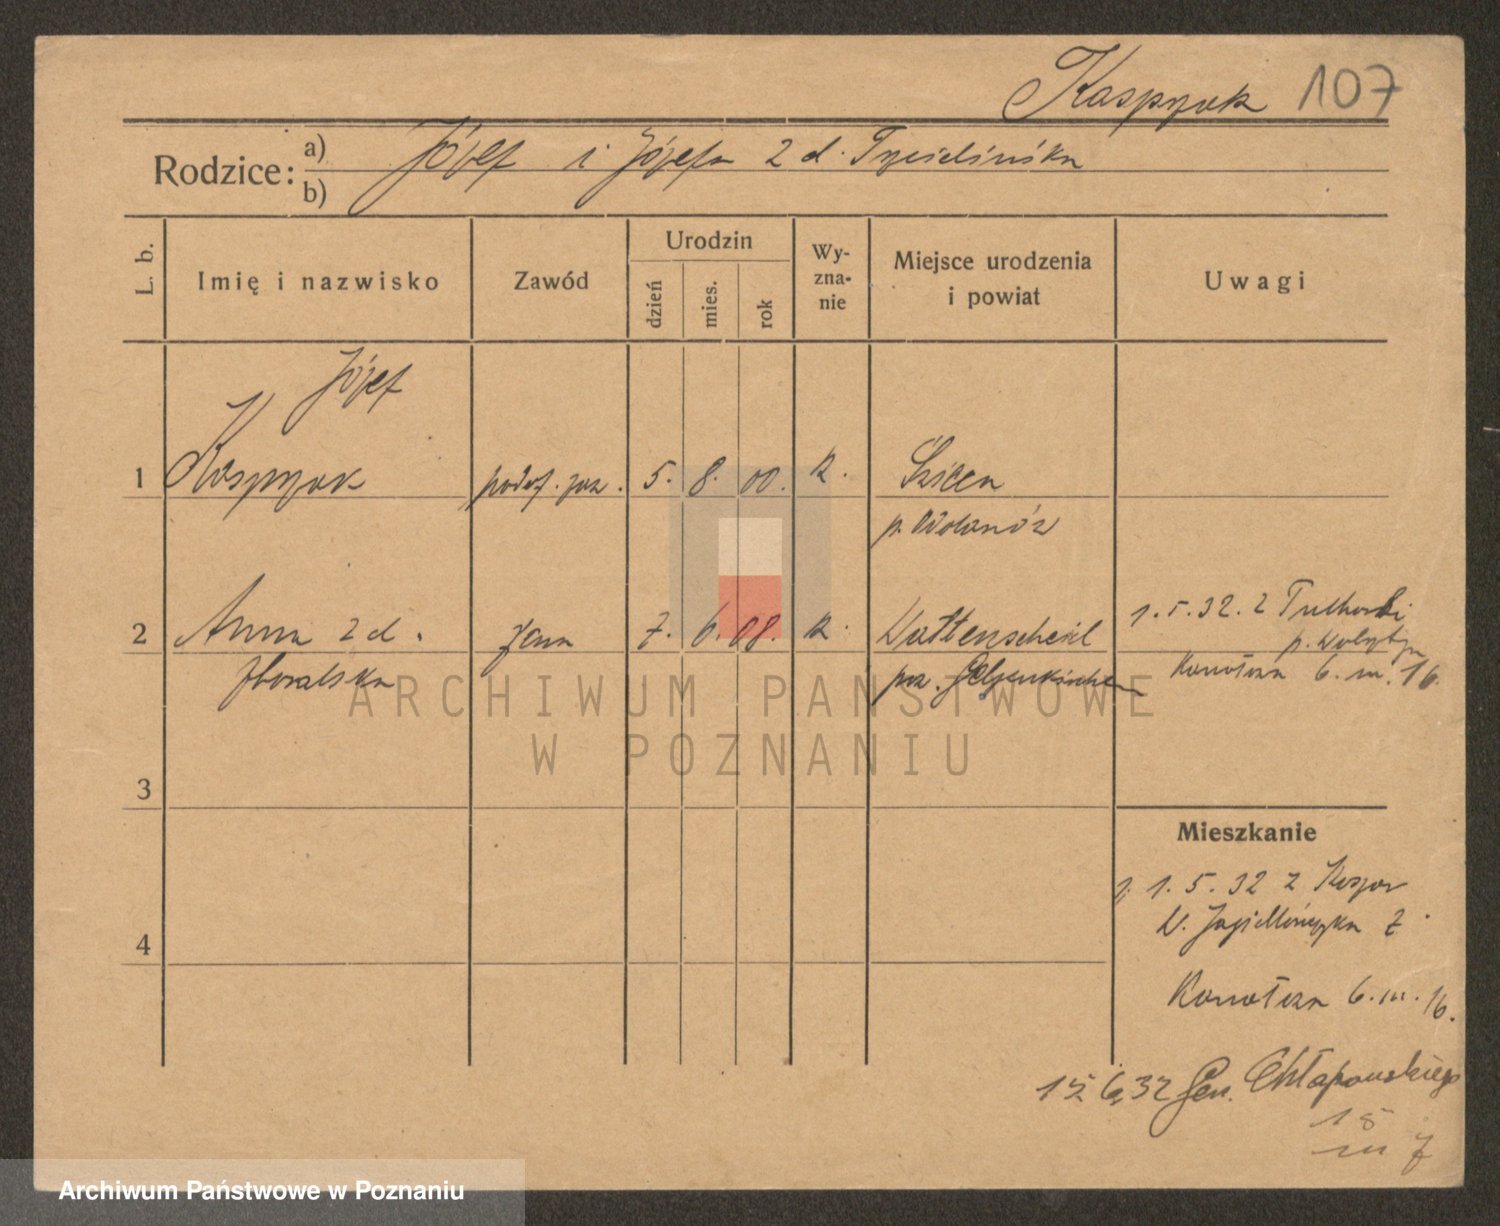 Kasprzak 107
Rodzice: a) Józef i Józefa z d.
b)
L. b.
Imię i nazwisko
Zawód
Urodzin
dzień
mies.
rok
Wy-
zna-
nie
Miejsce urodzenia
i powiat
Uwagi
Józef
1 Kasprzak podof. zaw. 5. 8. 00. k.
2 Anna z d. żona 7. 6. 08. k. Wattenscheid 1.5.32. z
pow. Gelsenkirchen 6. m. 16.
3
4
Mieszkanie
1.5.32 z
Jagiellończyka 7
6. m. 16.
15.6.32 Gen. Chłapowskiego
15
m 7
ARCHIWUM PAŃSTWOWE
W POZNANIU
Archiwum Państwowe w Poznaniu